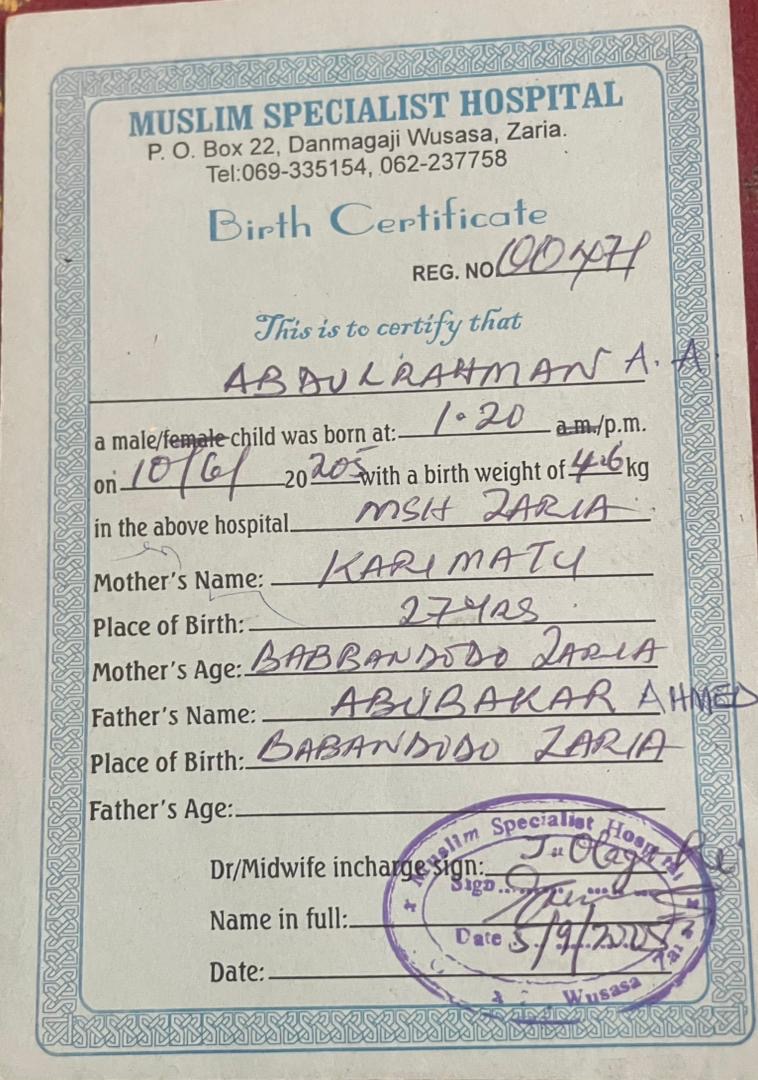 MUSLIM SPECIALIST HOSPITAL
P. O. Box 22, Danmagaji Wusasa, Zaria.
Tel:069-335154, 062-237758
Birth Certificate
REG. NO 00471
This is to certify that
ABDULRAHMAN A. A
a male/female child was born at: 1.20 a.m./p.m.
on 10/6/ 20 205 with a birth weight of 4.6 kg
in the above hospital MSH ZARIA
Mother's Name: KARIMATU
Place of Birth: 27 YRS
Mother's Age: BABBANDODO ZARIA
Father's Name: ABUBAKAR AHMED
Place of Birth: BABANDODO ZARIA
Father's Age:
Muslim Specialist Hospital
Dr/Midwife incharge sign:
Sign
Name in full:
Date 5/9/2005
Date:
Wusasa